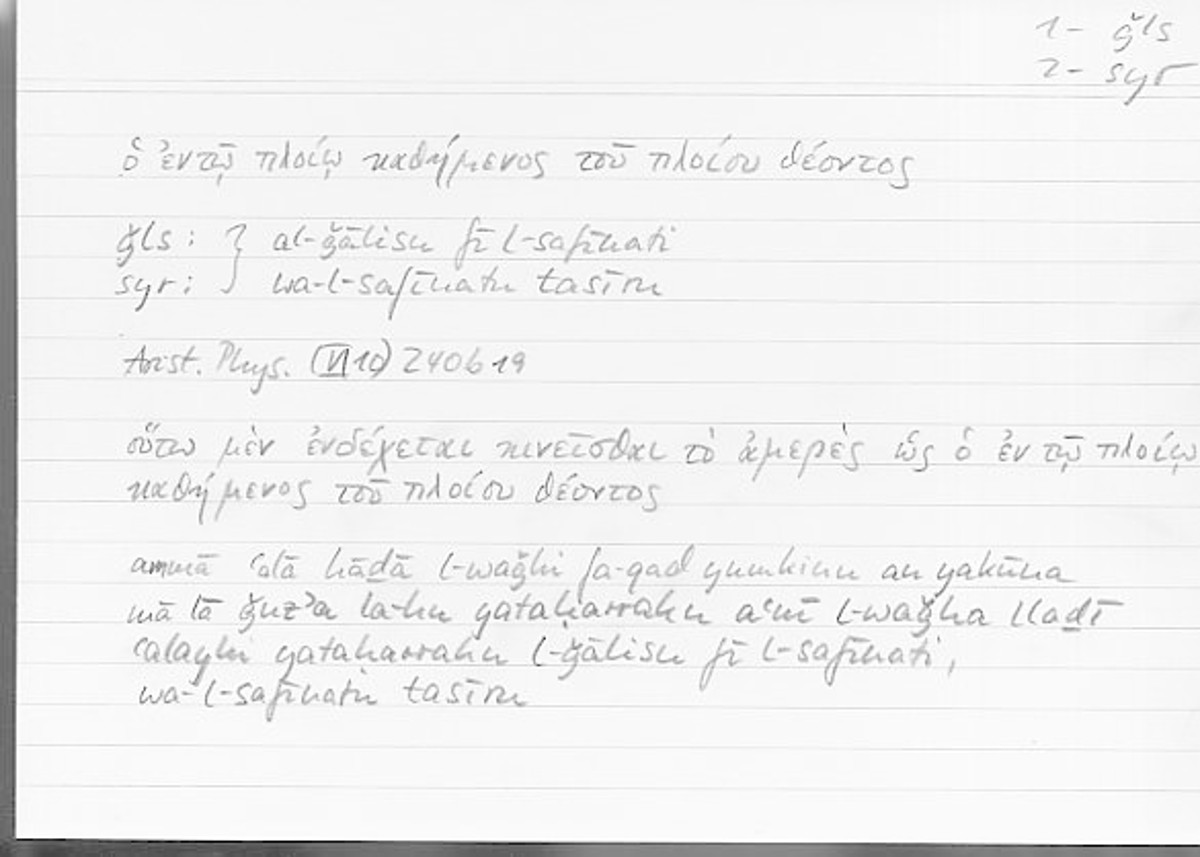 1- ǧls
2- syr
ὁ ἐν τῷ πλοίῳ καθήμενος τοῦ πλοίου θέοντος
ǧls: } al-ǧālisu fī l-safīnati
syr: } wa-l-safīnatu tasīru
Arist. Phys. (VI 10) 240b19
οὕτω μὲν ἐνδέχεται κινεῖσθαι τὸ ἀμερὲς ὡς ὁ ἐν τῷ πλοίῳ
καθήμενος τοῦ πλοίου θέοντος
ammā ʿalā hāḏā l-waǧhi fa-qad yumkinu an yakūna
mā lā ǧuzʾa la-hu yataḥarraku aʿnī l-waǧha llaḏī
ʿalayhi yataḥarraku l-ǧālisu fī l-safīnati,
wa-l-safīnatu tasīru